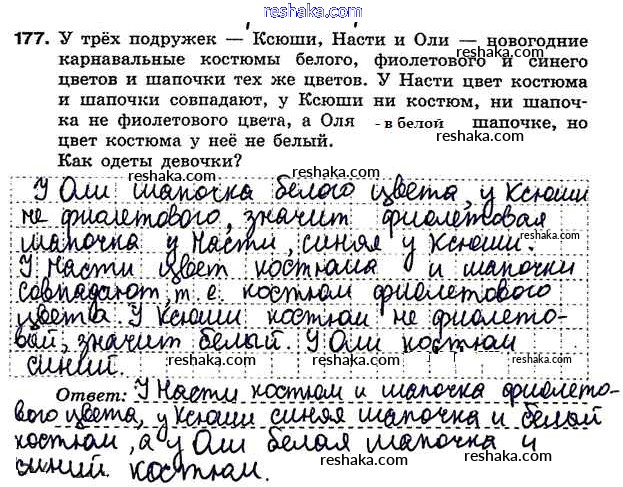 reshaka.com
177. У трёх подружек — Ксюши, Насти и Оли — новогодние
карнавальные костюмы белого, фиолетового и синего
цветов и шапочки тех же цветов. У Насти цвет костюма
и шапочки совпадают, у Ксюши ни костюм, ни шапоч-
ка не фиолетового цвета, а Оля - в белой шапочке, но
reshaka.com reshaka.com
цвет костюма у неё не белый.
Как одеты девочки?
reshaka.com
У Оли шапочка белого цвета, у Ксюши
не фиолетового, значит фиолетовая
reshaka.com
шапочка у Насти, синяя у Ксюши.
У Насти цвет костюма и шапочки
совпадают, т. е. костюм фиолетового
цвета. У Ксюши костюм не фиолето-
вый, значит белый. У Оли костюм
синий.
reshaka.com reshaka.com reshaka.com
Ответ: У Насти костюм и шапочка фиолето-
вого цвета, у Ксюши синяя шапочка и белый
reshaka.com
костюм, а у Оли белая шапочка и
синий костюм.
reshaka.com reshaka.com